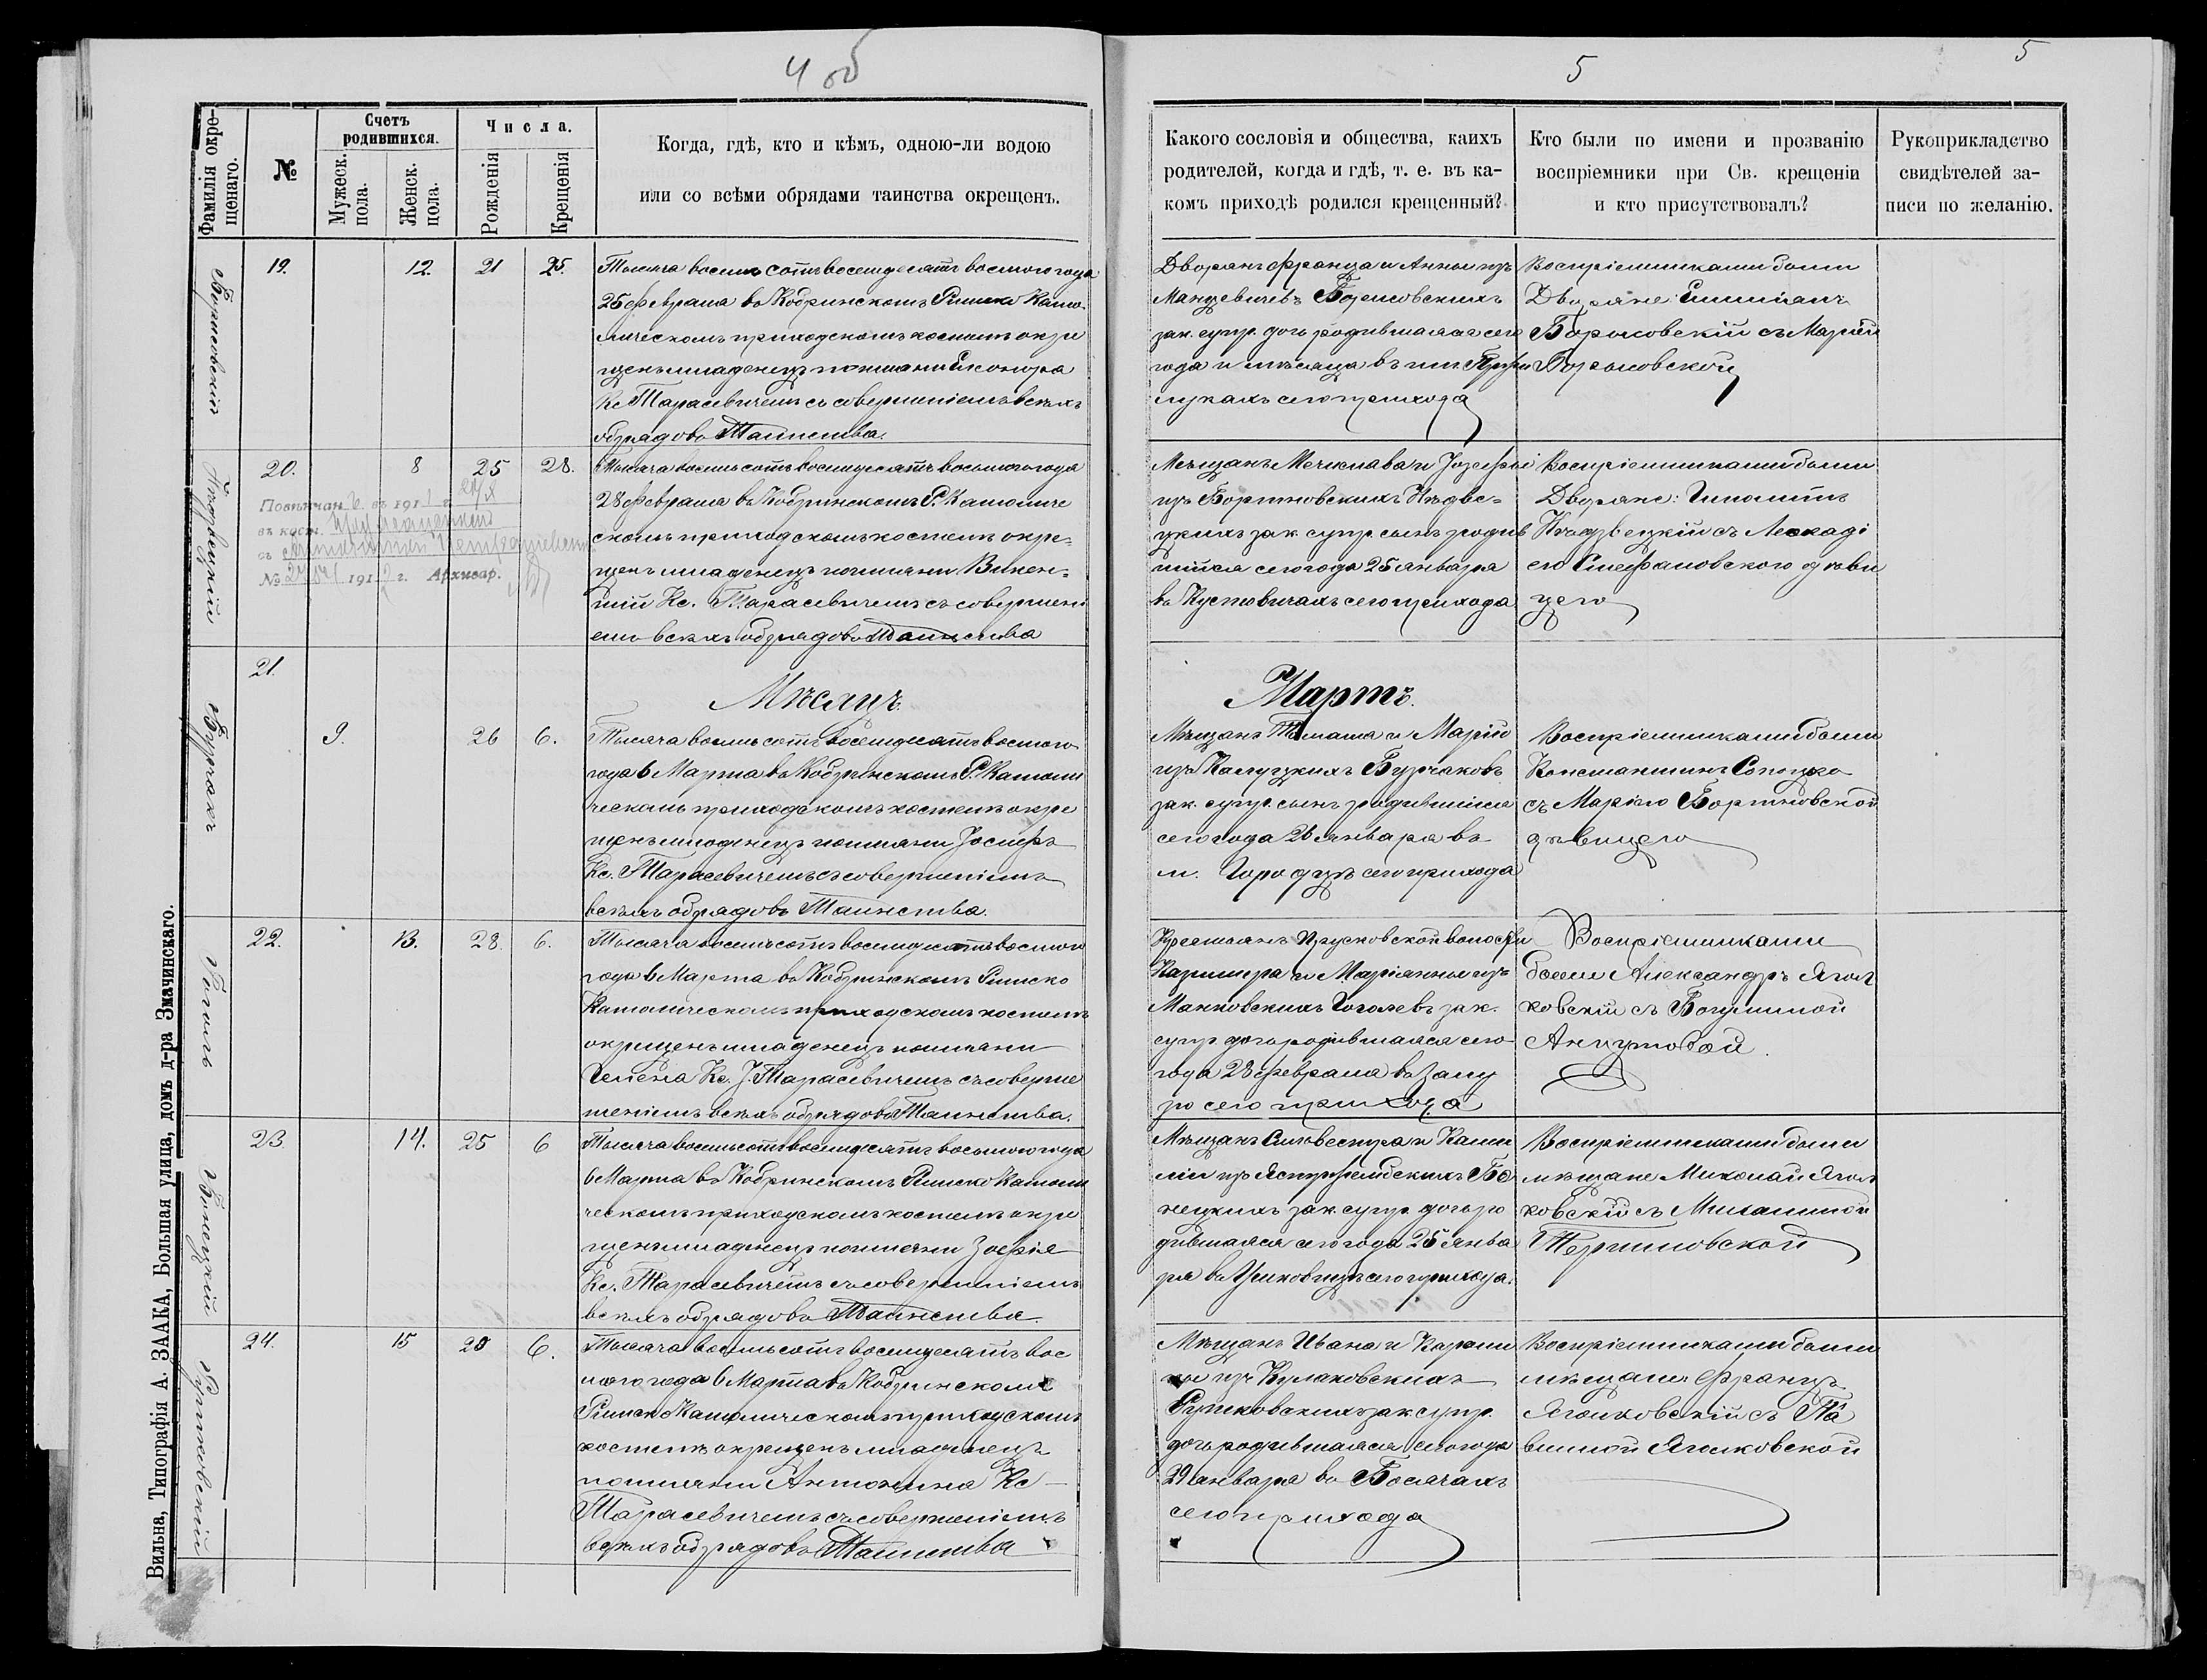 4 об
5
5
Фамилія окре-
щенаго.
№
Счетъ
родившихся.
Мужеск.
пола.
Женск.
пола.
Числа.
Рожденія
Крещенія
Когда, гдѣ, кто и кѣмъ, одною-ли водою
или со всѣми обрядами таинства окрещенъ.
Какого сословія и общества, каихъ
родителей, когда и гдѣ, т. е. въ ка-
комъ приходѣ родился крещенный?
Кто были по имени и прозванію
воспріемники при Св. крещеніи
и кто присутствовалъ?
Рукоприкладство
свидѣтелей за-
писи по желанію.
19. 12. 21 25.
Тысяча восемь сотъ восемдесятъ восмого года
25 февраля въ Кобринскомъ Римско Като-
лическомъ приходскомъ костелѣ окре
щенъ младенецъ по имени Елеонора
Кс Тарасевичемъ съ совершеніемъ всѣхъ
обрядовъ Таинства.
Дворянъ Франца и Анны изъ
зак. супр. дочь родившаяся сего
года и мѣсяца въ им.
лукахъ сего прихода
Воспріемниками были
Дворяне:
Борковскій съ Маріей
Борковской
20. 8 25 28.
Повѣнчан въ 191 г.
въ кост.
съ
№ 191 г. Архивар.
Тысяча восемь сотъ восемдесятъ восьмого года
28 февраля въ Кобринскомъ Р. Католиче
скомъ приходскомъ костелѣ окре-
щенъ младенецъ по имени Викен-
тій Кс. Тарасевичемъ съ совершені
емъ всѣхъ обрядовъ Таинства
Мѣщанъ Мечислава и Іозефы
изъ Бортновскихъ Нѣдве-
цкихъ зак. супр. сынъ родив
шійся сего года 25 января
въ Кустовичахъ сего прихода
Воспріемниками были
Дворяне: Гиполитъ
Нѣдзвецкій съ Леокаді
ею Стефановского дѣви
цею
21.
Мѣсяцъ
Мартъ.
Бурчакъ
9. 26 6.
Тысяча восемь сотъ восемдесятъ восмого
года 6 Марта въ Кобринскомъ Р. Католи
ческомъ приходскомъ костелѣ окре
щенъ младенецъ по имени Іосифъ
Кс. Тарасевичемъ съ совершеніемъ
всѣхъ обрядовъ Таинства.
Мѣщанъ Томаша и Маріи
изъ Калуцкихъ Бурчаковъ
зак. супр. сынъ родившійся
сего года 26 января въ
м. Городцѣ сего прихода
Воспріемниками были
Константинъ Сопоцко
съ Маріею Бортновской
дѣвицею
Гоголь
22. 13. 28. 6.
Тысяча восемь сотъ восемдесятъ восмого
года 6 Марта въ Кобринскомъ Римско
Католическомъ приходскомъ костелѣ
окрещенъ младенецъ по имени
Гелена Кс. І. Тарасевичемъ съ соверше
шеніемъ всѣхъ обрядовъ Таинства.
Крестьянъ Прусковской волости
Казимера и Маріянны изъ
Манковскихъ Гоголевъ зак.
супр дочь родившаяся сего
года 28 февраля въ Залу
зю сего прихода
Воспріемниками
были Александръ Ягол
ковскій съ
23. 14. 25 6
Тысяча восемь сотъ восемдесятъ восьмого года
6 Марта въ Кобринскомъ Римско Католи
ческомъ приходскомъ костелѣ окре
щенъ младенецъ по имени Зофія
Кс. Тарасевичемъ съ совершеніемъ
всѣхъ обрядовъ Таинства.
Мѣщанъ Сильвестра и Ками
ліи изъ Ястржембскихъ
нецкихъ зак. супр. дочь ро
дившаяся сего года 25 янва
ря въ сего прихода.
Воспріемниками были
мѣщане Миколай Ягол
ковскій съ Михалиной
Рушковскій
24. 15 20 6.
Тысяча восемь сотъ восемдесятъ вос
мого года 6 Марта въ Кобринскомъ
Римско Католическомъ приходскомъ
костелѣ окрещенъ младенецъ
по имени Антонина Кс
Тарасевичемъ съ совершеніемъ
всѣхъ обрядовъ Таинства
Мѣщанъ Ивана и Кароли
ны изъ Кулаковскихъ
Рушковскихъ зак. супр.
дочь родившаяся сего года
29 января въ
сего прихода
Воспріемниками были
мѣщане Францъ
Яголковскій съ Па
влиной Яголковской
Вильна, Типографія А. ЗААКА, Большая улица, домъ д-ра Змачинскаго.